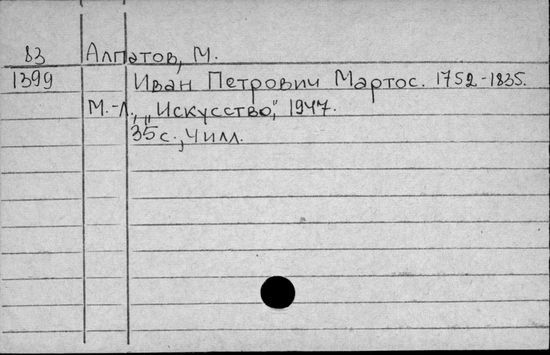 83 Алпатов, М.
1399 Иван Петрович Мартос. 1752-1835.
М.-Л., „Искусство", 1947.
35 с., 4 илл.